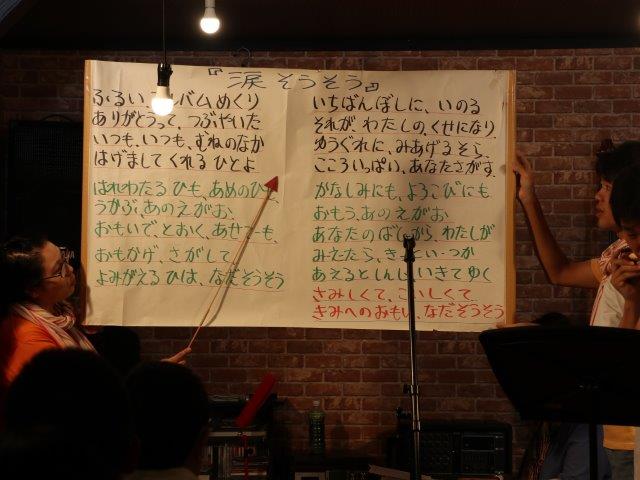 『涙 そうそう』
ふるい バムめくり
ありがとうって、つぶやいた
いつも、いつも、むねのなか
はげましてくれるひとよ
はれわたるひも、あめのひ
うかぶ、あのえがお、
おもいで、とおく、あせても、
おもかげ、さがして
よみがえるひは、なだそうそう
いちばんぼしに、いのる
それが、わたしの、くせになり
ゆうぐれに、みあげるそら、
こころいっぱい、あなたさがす
かなしみにも、よろこびにも
おもう、あのえがお
あなたのばしょから、わたしが
みえたら、きっといつか
あえるとしんじいきてゆく
さみしくて、こいしくて、
きみへのおもい、なだそうそう